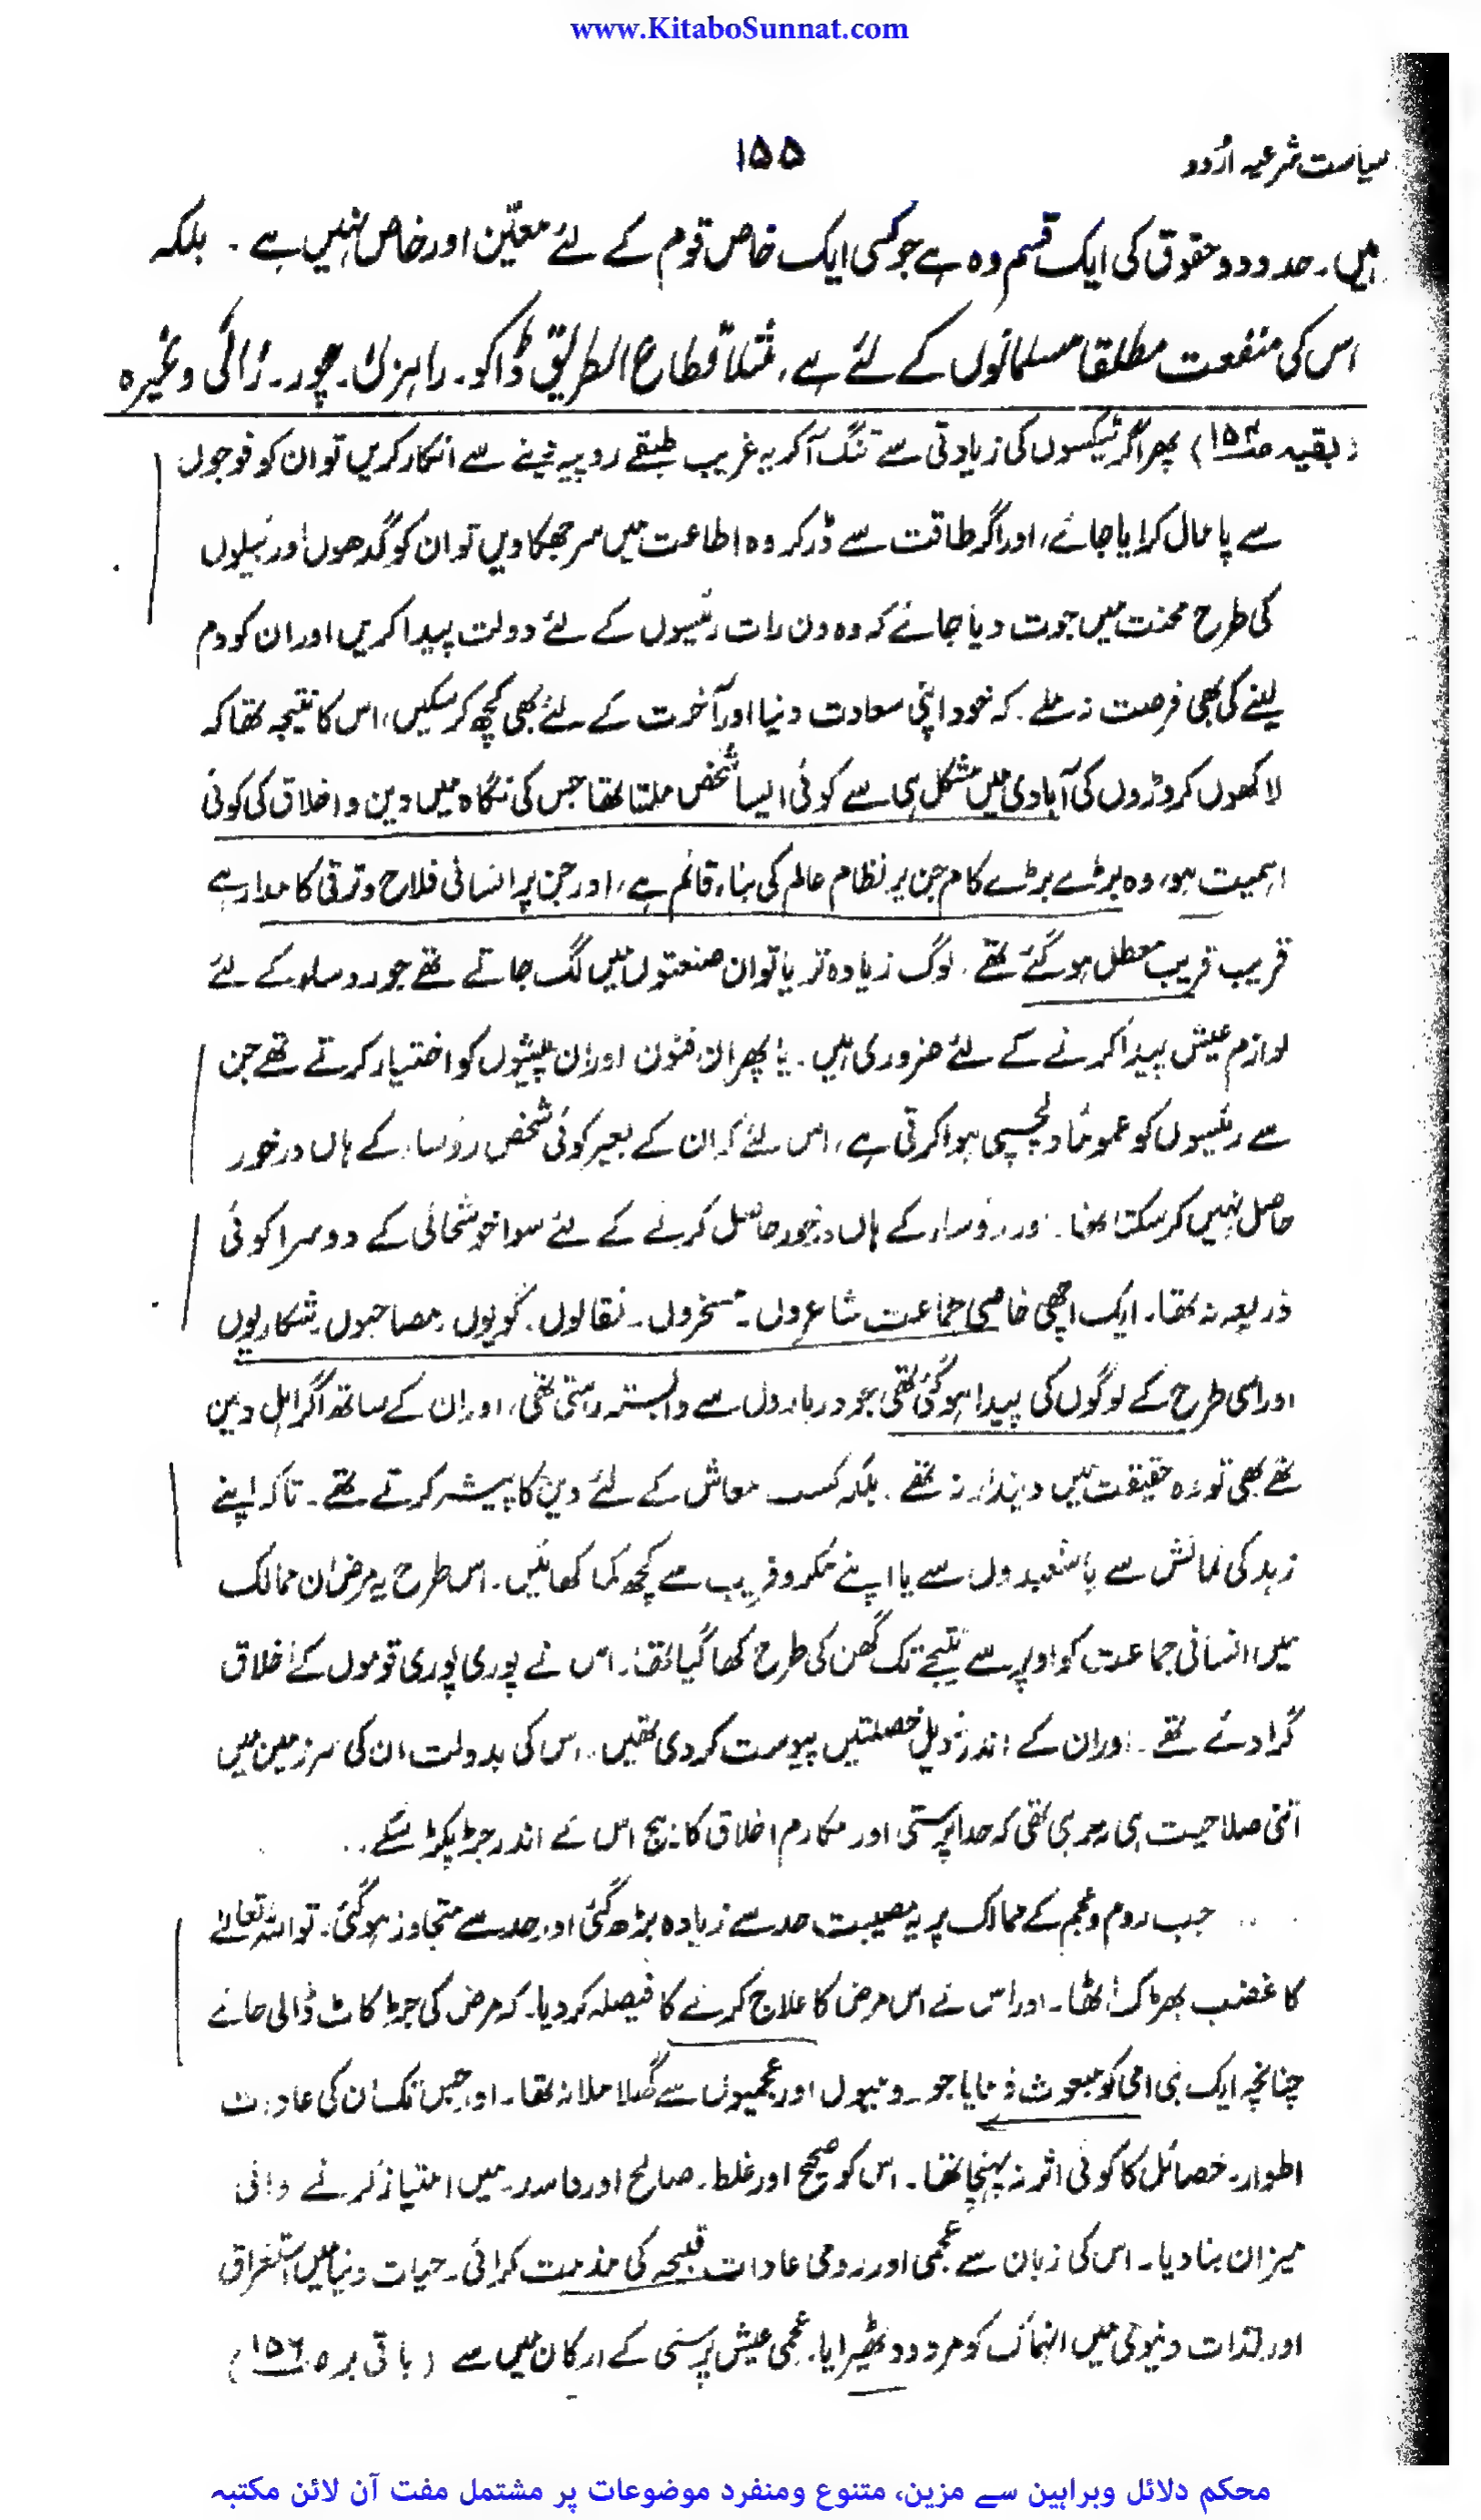 www.KitaboSunnat.com
سیاست شرعیہ اُردو
۱۵۵
ہیں۔ حدود و حقوق کی ایک قسم وہ ہے جو کسی ایک خاص قوم کے لئے معیّن اور خاص نہیں ہے۔ بلکہ
اس کی منفعت مطلقا مسلمانوں کے لئے ہے، مثلاً قطاع الطریق ڈاکو۔ راہزن۔ چور۔ زانی وغیرہ
(بقیہ ص۱۵۴) پھر اگر ٹیکسوں کی زیادتی سے تنگ آکر یہ غریب طبقے روپیہ دینے سے انکار کریں تو ان کو فوجوں
سے پامال کرایا جائے، اور اگر طاقت سے ڈر کر وہ اطاعت میں سر جھکا دیں تو ان کو گدھوں اور بیلوں
کی طرح محنت میں جوت دیا جائے کہ وہ دن رات رئیسوں کے لئے دولت پیدا کریں اور ان کو دم
لینے کی بھی فرصت نہ ملے۔ کہ خود اپنی سعادت دنیا اور آخرت کے لئے بھی کچھ کر سکیں، اس کا نتیجہ تھا کہ
لاکھوں کروڑوں کی آبادی میں مشکل ہی سے کوئی ایسا شخص ملتا تھا جس کی نگاہ میں دین و اخلاق کی کوئی
اہمیت ہو، وہ بڑے بڑے کام جن پر نظام عالم کی بناء قائم ہے، اور جن پر انسانی فلاح و ترقی کا مدار ہے
قریب قریب معطل ہو گئے تھے۔ لوگ زیادہ تر یا تو ان صنعتوں میں لگ جاتے تھے جو رؤساء کے لئے
لوازم عیش پیدا کرنے کے لئے ضروری ہیں۔ یا پھر ان فنون اور ان پیشوں کو اختیار کرتے تھے جن
سے رئیسوں کو عموماً دلچسپی ہوا کرتی ہے، اس لئے کہ ان کے بغیر کوئی شخص رؤساء کے ہاں درخور
حاصل نہیں کر سکتا تھا۔ اور رؤساء کے ہاں درخور حاصل کرنے کے لئے سوا خوشحالی کے دوسرا کوئی
ذریعہ نہ تھا۔ ایک اچھی خاصی جماعت شاعروں۔ مسخروں۔ نقالوں۔ گویوں، مصاحبوں، شکاریوں
اور اسی طرح کے لوگوں کی پیدا ہوگئی تھی جو درباروں سے وابستہ رہتی تھی، اور ان کے ساتھ اگر اہل دین
تھے بھی تو وہ حقیقت میں دیندار نہ تھے۔ بلکہ کسب معاش کے لئے دین کا پیشہ کرتے تھے۔ تاکہ اپنے
زہد کی نمائش سے یا شعبدوں سے یا اپنے مکر و فریب سے کچھ کما کھائیں۔ اس طرح یہ مرض ان ممالک
میں انسانی جماعت کو اوپر سے نیچے تک گھن کی طرح کھا گیا تھا۔ اس نے پوری پوری قوموں کے اخلاق
گرا دئے تھے۔ اور ان کے اندر رذیل خصلتیں پیوست کر دی تھیں۔ اس کی بدولت ان کی سرزمین میں
اتنی صلاحیت ہی نہ رہی تھی کہ خدا پرستی اور مکارم اخلاق کا بیج اس کے اندر جڑ پکڑ سکے۔
جب روم و عجم کے ممالک پر یہ مصیبت حد سے زیادہ بڑھ گئی اور حد سے متجاوز ہوگئی۔ تو اللہ تعالےٰ
کا غضب بھڑک اٹھا۔ اور اس نے اس مرض کا علاج کرنے کا فیصلہ کر دیا۔ کہ مرض کی جڑ کاٹ ڈالی جائے
چنانچہ ایک نبی امی کو مبعوث فرمایا جو رومیوں اور عجمیوں سے گھلا ملا نہ تھا۔ اور جس تک ان کی عادات
اطوار۔ خصائل کا کوئی اثر نہ پہنچا تھا۔ اس کو صحیح اور غلط۔ صالح اور فاسد میں امتیاز کرنے والی
میزان بنا دیا۔ اس کی زبان سے عجمی اور رومی عادات قبیحہ کی مذمت کرائی۔ حیات دنیا میں استغراق
اور لذات دنیوی میں انہماک کو مردود ٹھیرایا۔ عجمی عیش پرستی کے ارکان میں سے (باقی بر ص۱۵۶)
محکم دلائل وبراہین سے مزین، متنوع ومنفرد موضوعات پر مشتمل مفت آن لائن مکتبہ